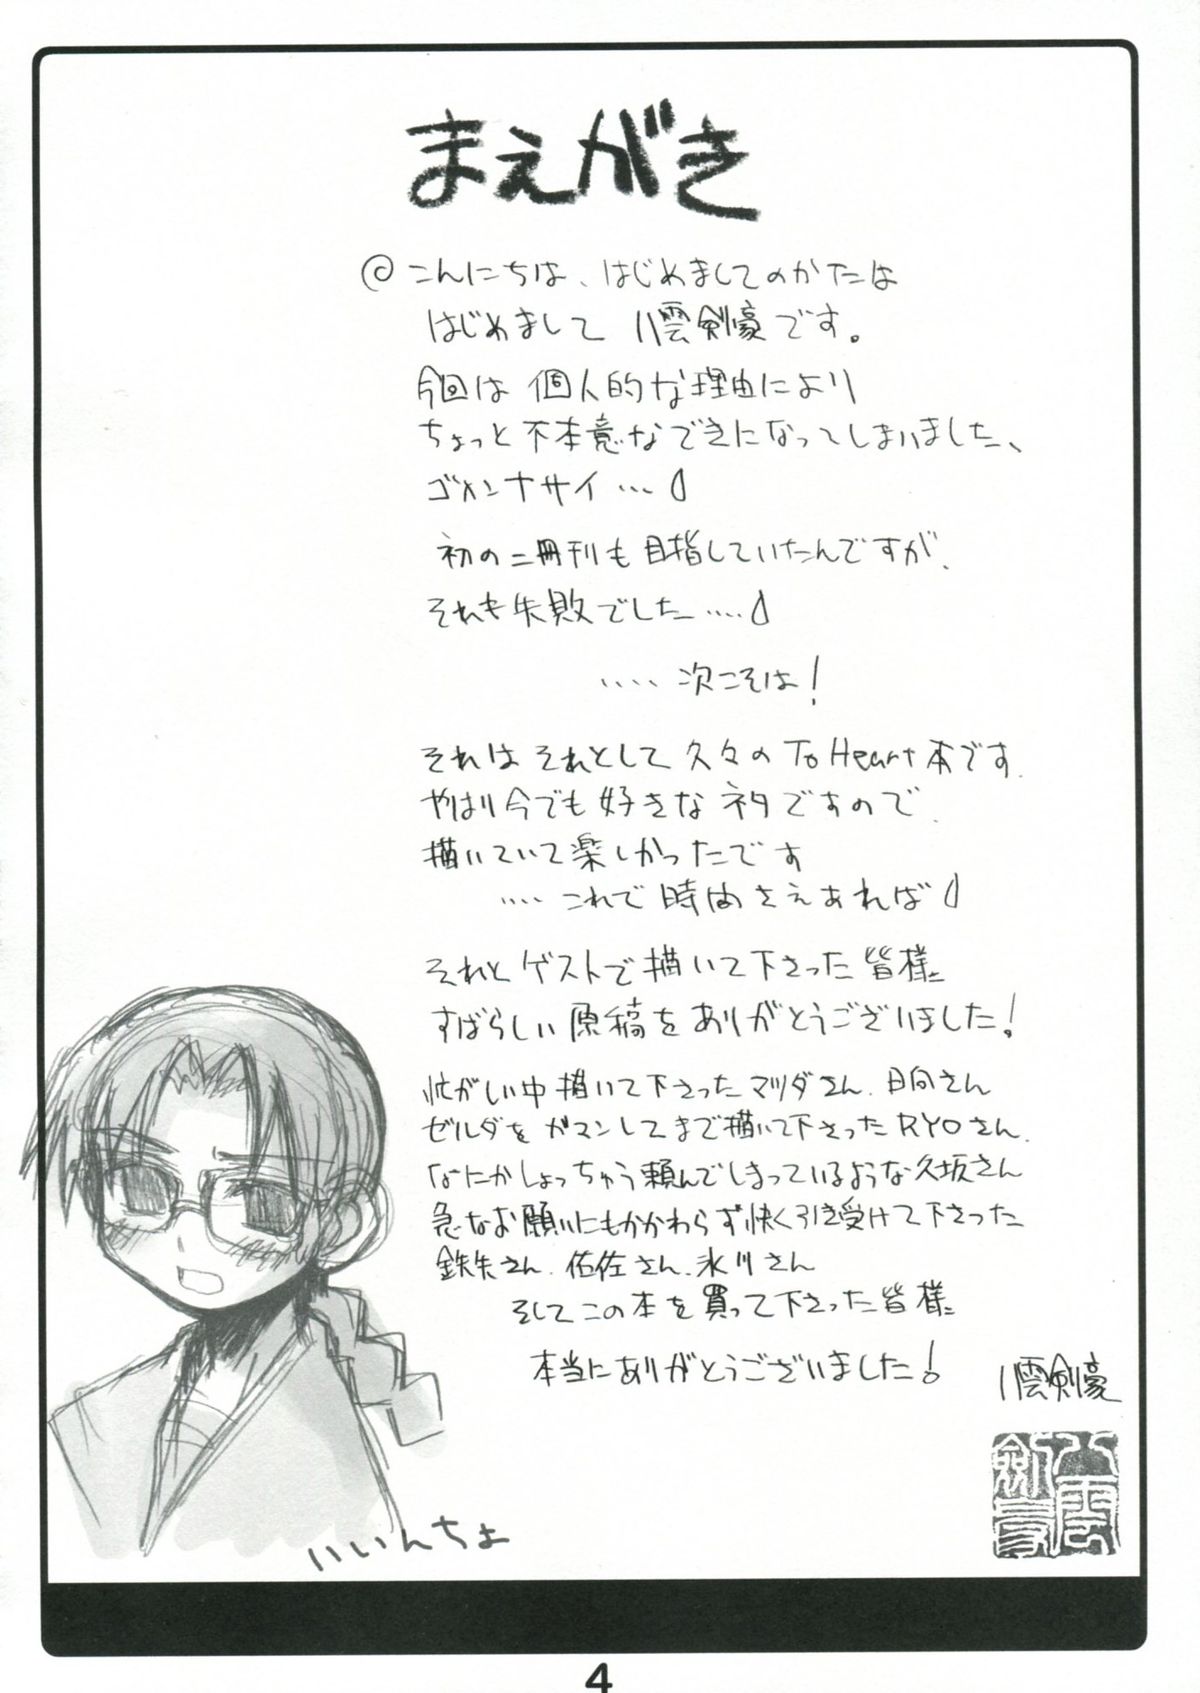 まえがき
◎こんにちは、はじめましてのかたは
はじめまして 八雲剣豪です。
今回は 個人的な理由により
ちょっと不本意なできになってしまいました、
ゴメンナサイ…
初の二冊刊も目指していたんですが、
それも失敗でした……
…… 次こそは!
それは それとして 久々の To Heart 本です.
やはり今でも好きなネタですので、
描いていて楽しかったです
…… これで時間さえあれば
それと ゲストで描いて下さった皆様
すばらしい原稿をありがとうございました!
忙がしい中描いて下さったマツダさん、日向さん
ゼルダをガマンしてまで描いて下さったRYOさん、
なにかしょっちゅう頼んでしまっているような久坂さん
急なお願いにもかかわらず快く引き受けて下さった
鉄矢さん、佑佐さん、氷川さん
そしてこの本を買って下さった皆様
本当にありがとうございました!
八雲剣豪
八雲
剣豪
いいんちょ
4